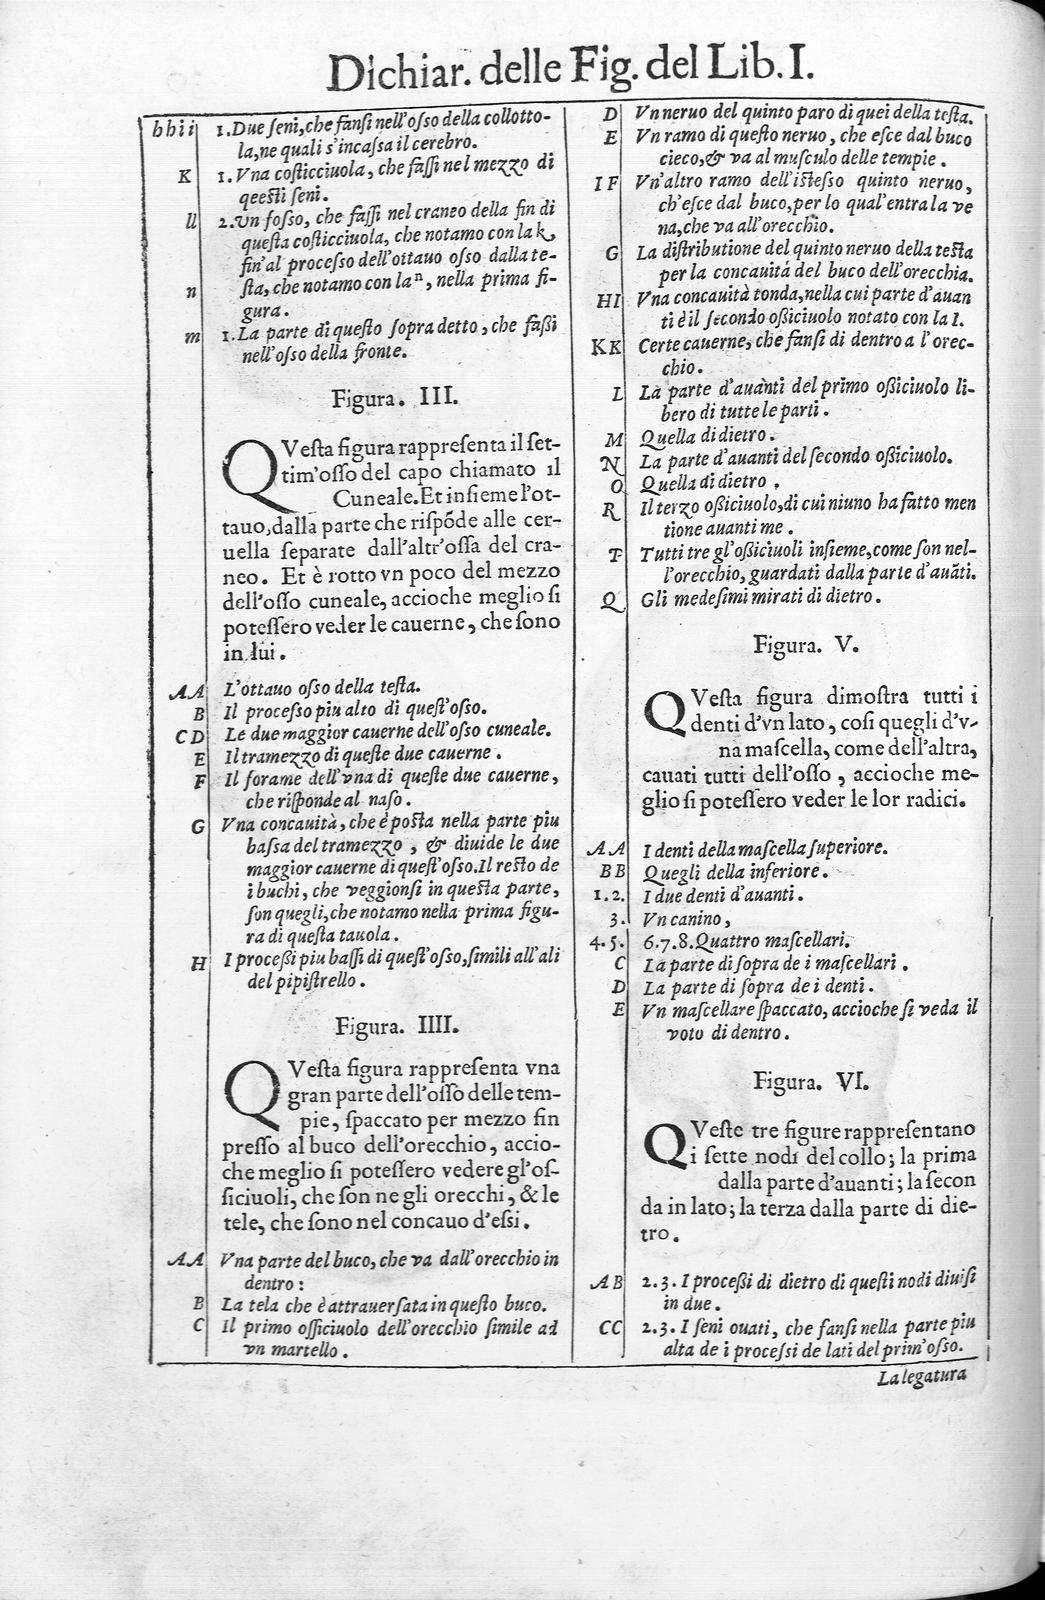 Dichiar. delle Fig. del Lib. I.
hhii 1. Due ſeni, che fanſi nell'oſſo della collotto-
la, ne quali s'incaſſa il cerebro.
K 1. Vna coſticciuola, che faſſi nel mezzo di
queſti ſeni.
ll 2. Vn foſſo, che faſſi nel craneo della fin di
queſta coſticciuola, che notamo con la k,
fin'al proceſſo dell'ottauo oſſo dalla te-
n ſta, che notamo con la n, nella prima fi-
gura.
m 1. La parte di queſto ſopra detto, che faßi
nell'oſſo della fronte.
Figura. III.
QVeſta figura rappreſenta il ſet-
tim'oſſo del capo chiamato il
Cuneale. Et inſieme l'ot-
tauo, dalla parte che riſpõde alle cer-
uella ſeparate dall'altr'oſſa del cra-
neo. Et è rotto vn poco del mezzo
dell'oſſo cuneale, accioche meglio ſi
poteſſero veder le cauerne, che ſono
in lui.
AA L'ottauo oſſo della teſta.
B Il proceſſo piu alto di queſt'oſſo.
CD Le due maggior cauerne dell'oſſo cuneale.
E Il tramezzo di queſte due cauerne.
F Il forame dell'vna di queſte due cauerne,
che riſponde al naſo.
G Vna concauità, che è poſta nella parte piu
baſſa del tramezzo, & diuide le due
maggior cauerne di queſt'oſſo. Il reſto de
i buchi, che veggionſi in queſta parte,
ſon quegli, che notamo nella prima figu-
ra di queſta tauola.
H I proceßi piu baſſi di queſt'oſſo, ſimili all'ali
del pipiſtrello.
Figura. IIII.
QVeſta figura rappreſenta vna
gran parte dell'oſſo delle tem-
pie, ſpaccato per mezzo fin
preſſo al buco dell'orecchio, accio-
che meglio ſi poteſſero vedere gl'oſ-
ſiciuoli, che ſon ne gli orecchi, & le
tele, che ſono nel concauo d'eſsi.
AA Vna parte del buco, che va dall'orecchio in
dentro:
B La tela che è attrauerſata in queſto buco.
C Il primo officiuolo dell'orecchio ſimile ad
vn martello.
D Vn neruo del quinto paro di quei della teſta.
E Vn ramo di queſto neruo, che eſce dal buco
cieco, & va al muſculo delle tempie.
IF Vn'altro ramo dell'iſteſſo quinto neruo,
ch'eſce dal buco, per lo qual'entra la ve
na, che va all'orecchio.
G La diſtributione del quinto neruo della teſta
per la concauità del buco dell'orecchia.
HI Vna concauità tonda, nella cui parte d'auan
ti è il ſecondo oßiciuolo notato con la I.
KK Certe cauerne, che fanſi di dentro a l'orec-
chio.
L La parte d'auanti del primo oßiciuolo li-
bero di tutte le parti.
M Quella di dietro.
N La parte d'auanti del ſecondo oßiciuolo.
O Quella di dietro.
R Il terzo oßiciuolo, di cui niuno ha fatto men
tione auanti me.
P Tutti tre gl'oßiciuoli inſieme, come ſon nel-
l'orecchio, guardati dalla parte d'auãti.
Q Gli medeſimi mirati di dietro.
Figura. V.
QVeſta figura dimoſtra tutti i
denti d'vn lato, coſi quegli d'v-
na maſcella, come dell'altra,
cauati tutti dell'oſſo, accioche me-
glio ſi poteſſero veder le lor radici.
AA I denti della maſcella ſuperiore.
BB Quegli della inferiore.
1.2. I due denti d'auanti.
3. Vn canino,
4.5. 6.7.8. Quattro maſcellari.
C La parte di ſopra de i maſcellari.
D La parte di ſopra de i denti.
E Vn maſcellare ſpaccato, accioche ſi veda il
voto di dentro.
Figura. VI.
QVeſte tre figure rappreſentano
i ſette nodi del collo; la prima
dalla parte d'auanti; la ſecon
da in lato; la terza dalla parte di die-
tro.
AB 2.3. I proceßi di dietro di queſti nodi diuiſi
in due.
CC 2.3. I ſeni ouati, che fanſi nella parte piu
alta de i proceſſi de lati del prim'oſſo.
La legatura